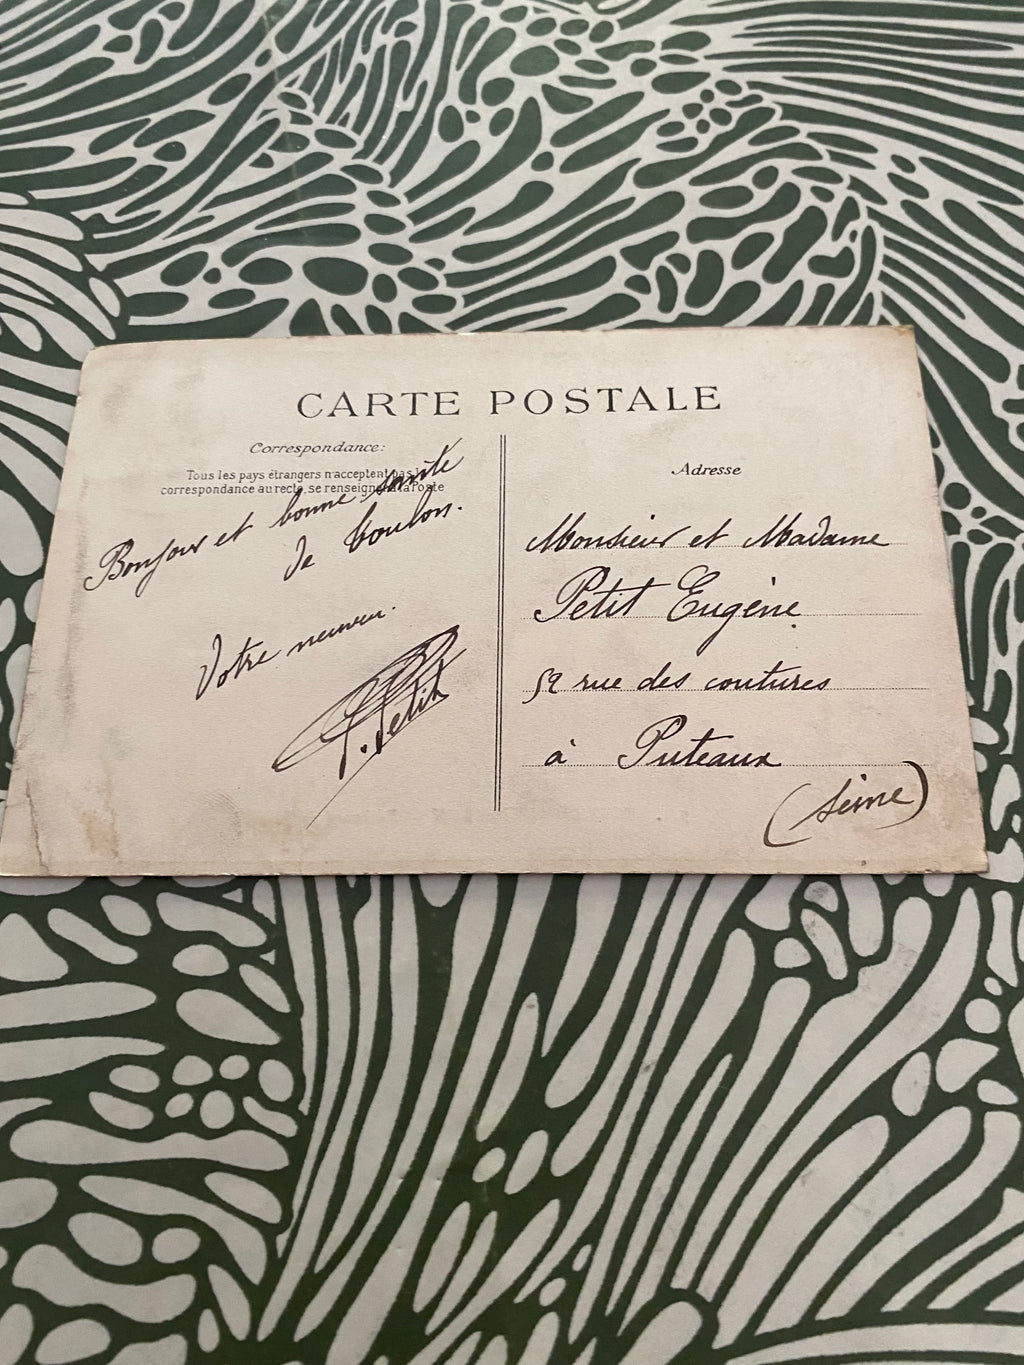 CARTE POSTALE
Correspondance:
Tous les pays étrangers n'acceptent pas la
correspondance au recto, se renseigner à la Poste
Bonjour et bonne santé
de Toulon.
Votre neuveu.
P. Petit
Adresse
Monsieur et Madame
Petit Eugène
59 rue des coutures
à Puteaux
(Seine)